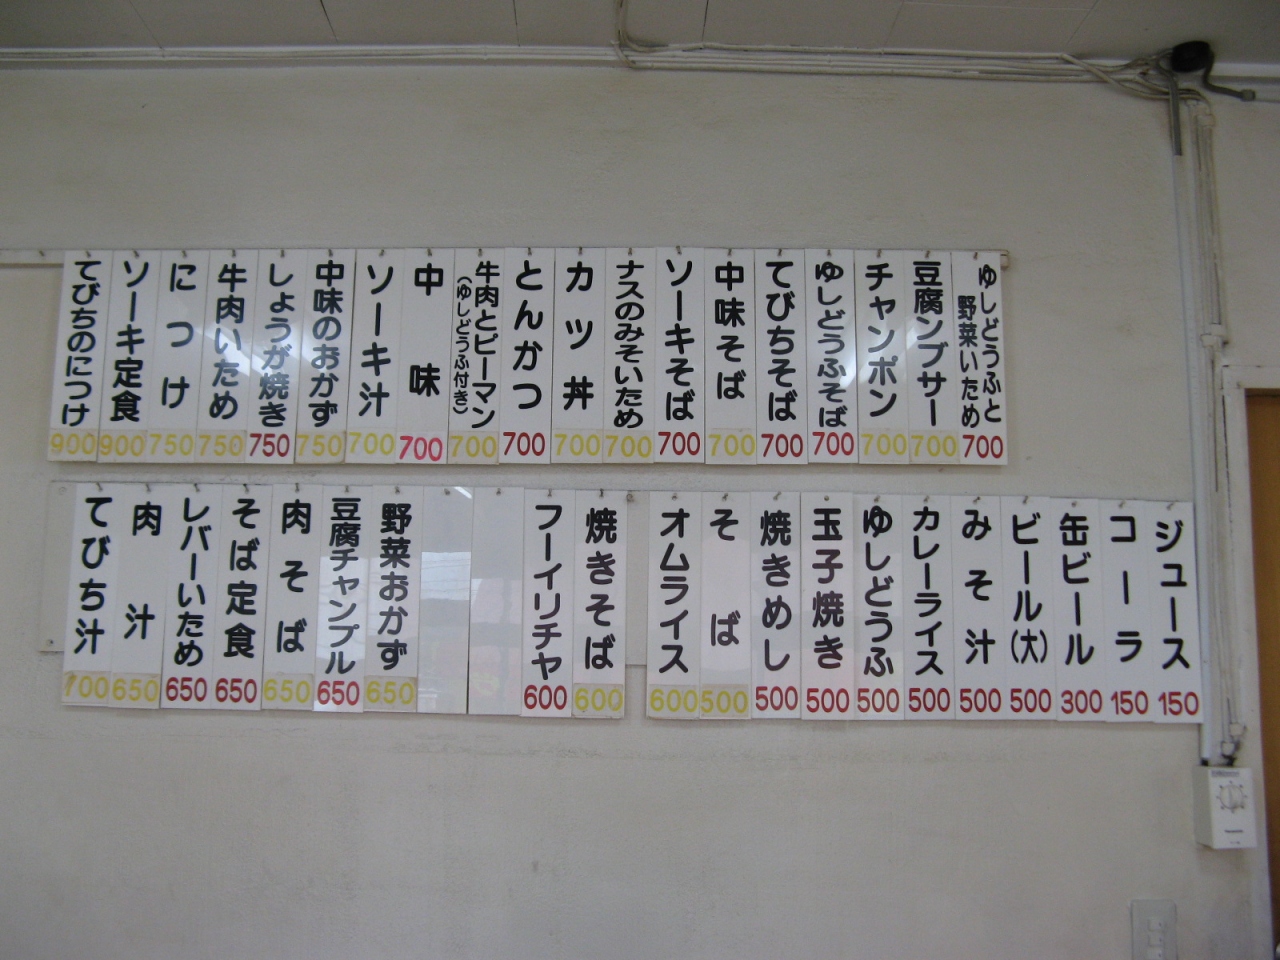 ゆしどうふと野菜いため 700
豆腐ンブサー 700
チャンポン 700
ゆしどうふそば 700
てびちそば 700
中味そば 700
ソーキそば 700
ナスのみそいため 700
カツ丼 700
とんかつ 700
牛肉とピーマン(ゆしどうふ付き) 700
中味 700
ソーキ汁 700
中味のおかず 750
しょうが焼き 750
牛肉いため 750
につけ 750
ソーキ定食 900
てびちのにつけ 900
ジュース 150
コーラ 150
缶ビール 300
ビール(大) 500
みそ汁 500
カレーライス 500
ゆしどうふ 500
玉子焼き 500
焼きめし 500
そば 500
オムライス 600
焼きそば 600
フーイリチャ 600
野菜おかず 650
豆腐チャンプル 650
肉そば 650
そば定食 650
レバーいため 650
肉汁 650
てびち汁 700